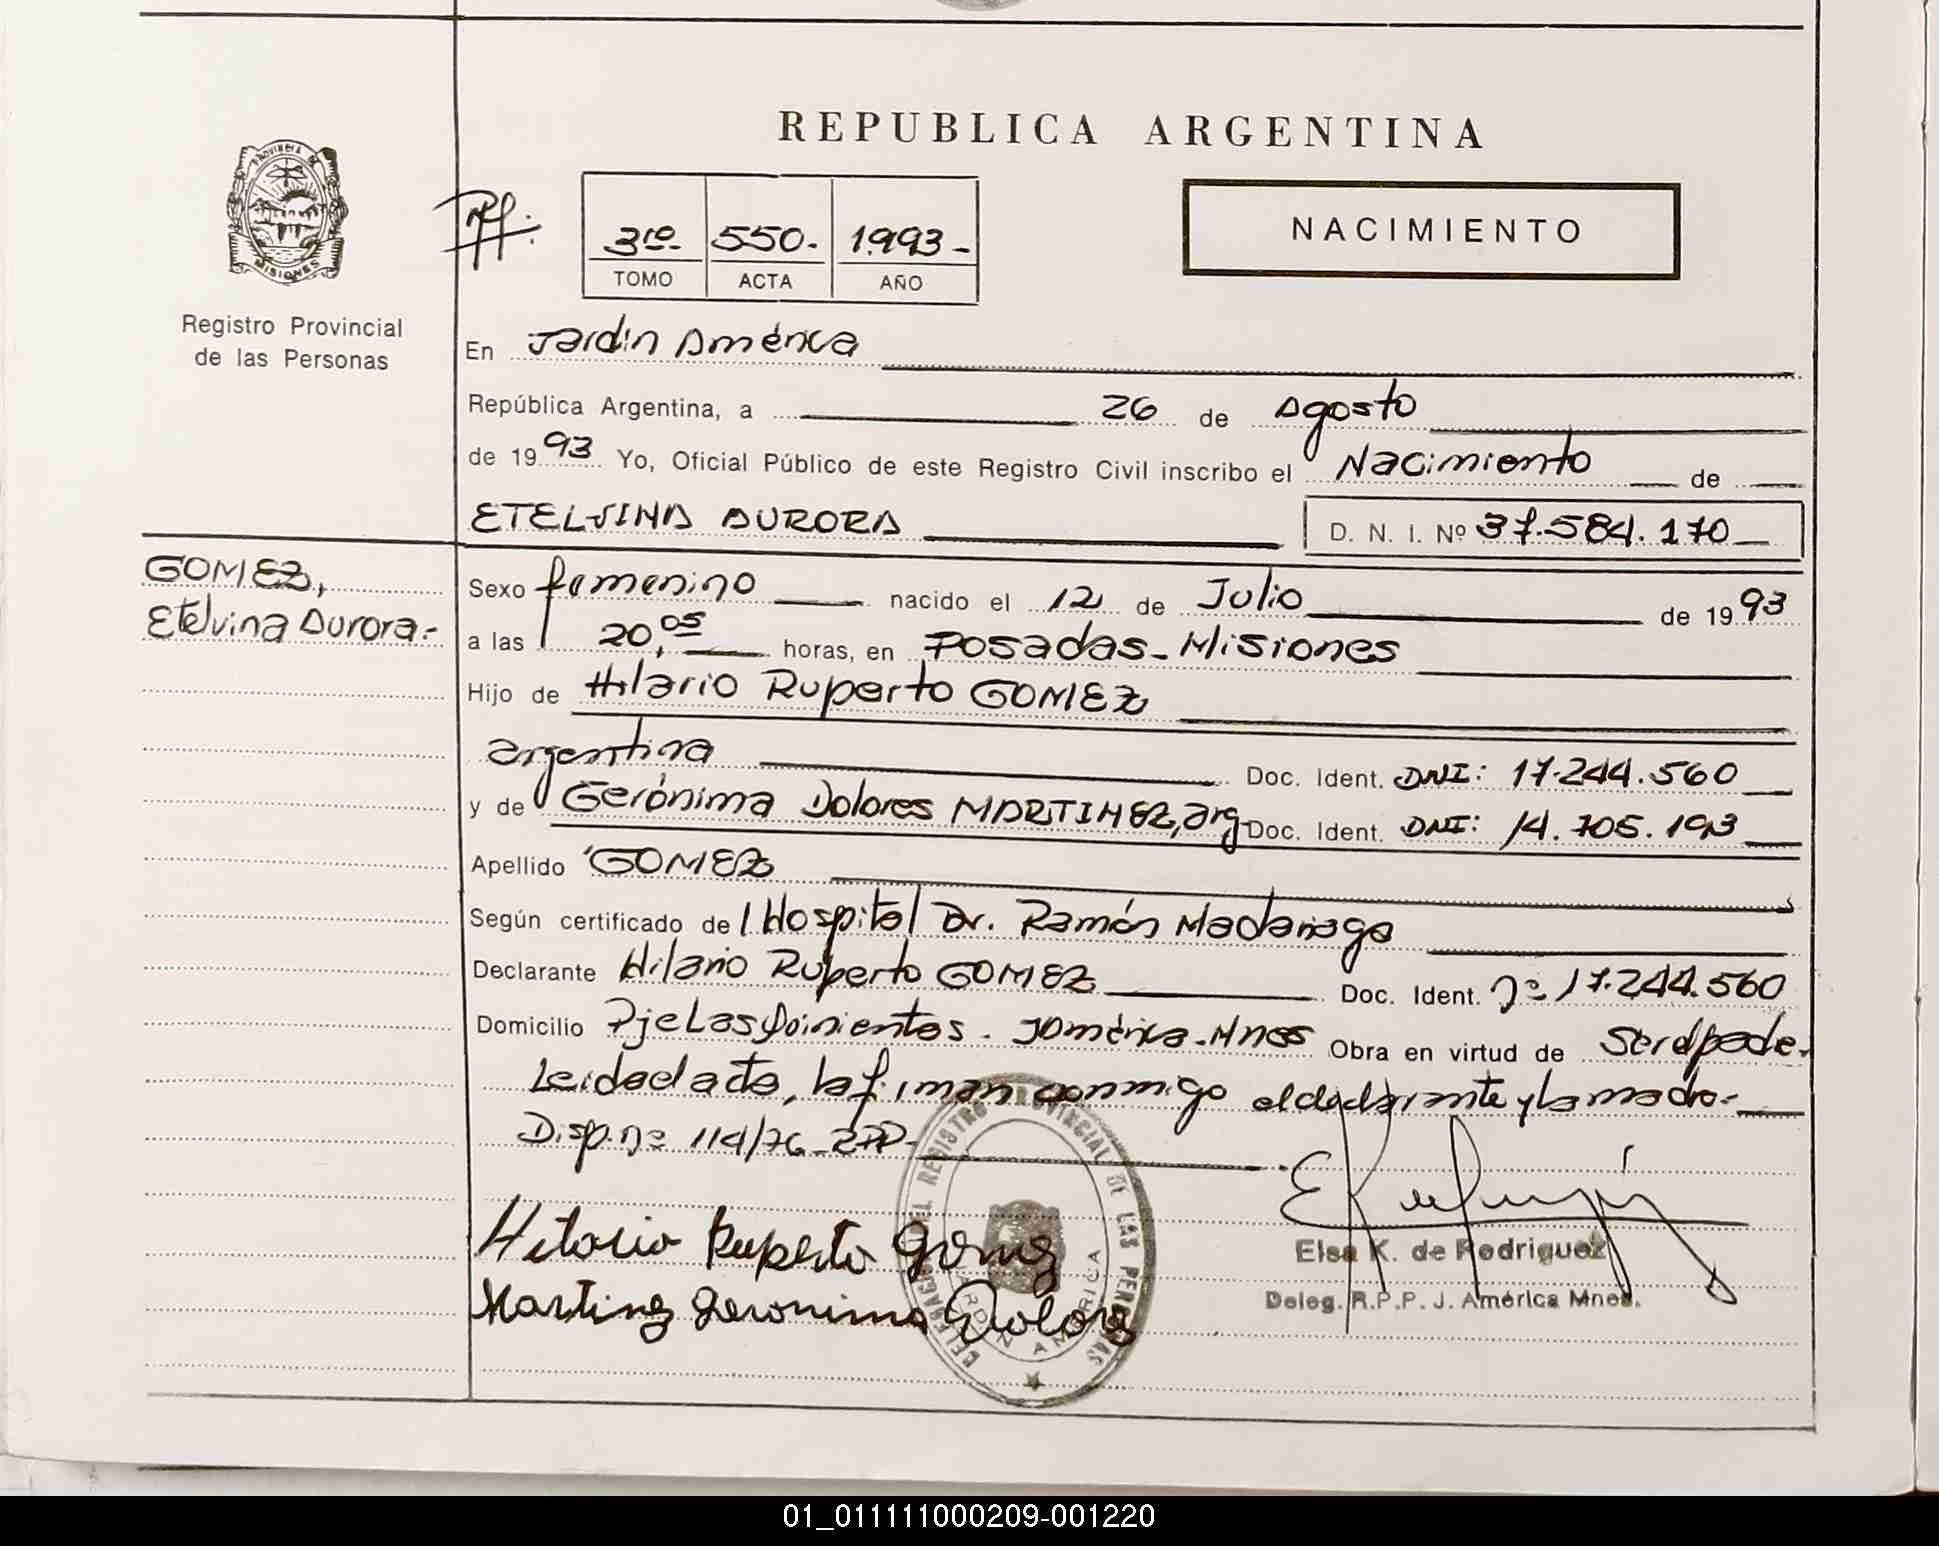 REPUBLICA ARGENTINA
PROVINCIA DE
MISIONES
Registro Provincial
de las Personas
3ro. 550. 1993
TOMO ACTA AÑO
NACIMIENTO
En Jardín América
República Argentina, a 26 de Agosto
de 1993 Yo, Oficial Público de este Registro Civil inscribo el Nacimiento de
ETELVINA AURORA D. N. I. Nº 37.584.170
GOMEZ,
Etelvina Aurora.-
Sexo femenino nacido el 12 de Julio de 1993
a las 20,05 horas, en Posadas - Misiones
Hijo de Hilario Ruperto GOMEZ
argentina Doc. Ident. DNI: 17.244.560
y de Gerónima Dolores MARTINEZ, arg Doc. Ident. DNI: 14.705.193
Apellido GOMEZ
Según certificado del Hospital Dr. Ramón Madariaga
Declarante Hilario Ruperto GOMEZ Doc. Ident. nº 17.244.560
Domicilio Pje Las . JAmérica - Mnes Obra en virtud de Ser el padre.
Leida el acta, la firman conmigo el declarante y la madre.-
Disp. nº 114/76 - RPP.
Hilario Ruperto Gomez
Martinez Geronima Dolores
DELEGACION DEL REGISTRO PROVINCIAL DE LAS PERSONAS
JARDIN AMERICA
Elsa K. de Rodriguez
Deleg. R.P.P. J. América Mnes.
01_011111000209-001220